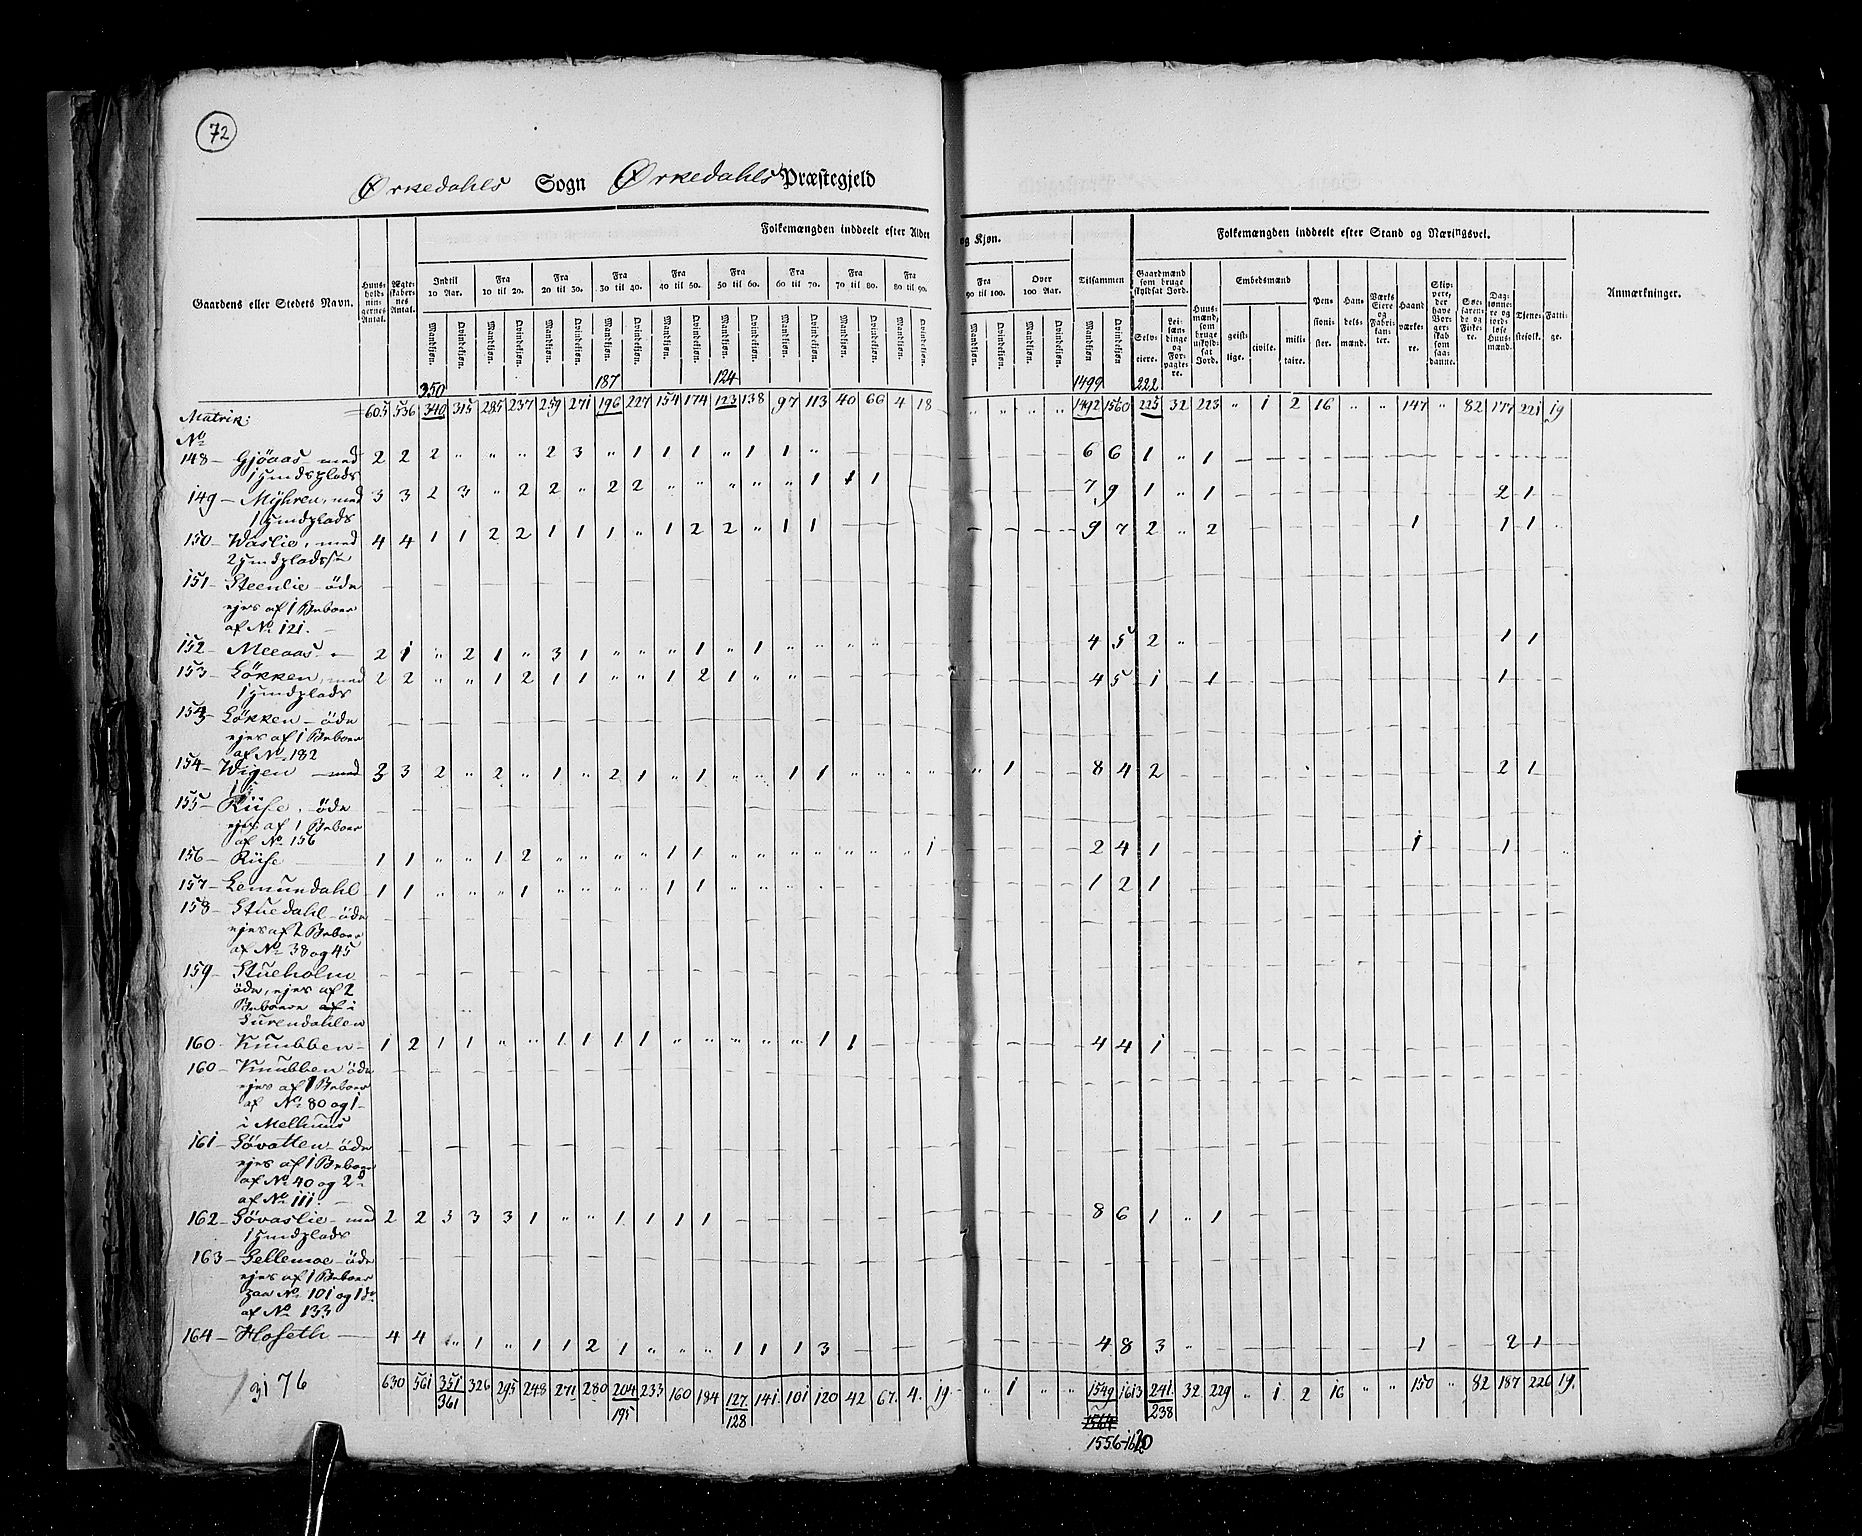 72
Ørkedahls Sogn Ørkedahls Præstegjeld
Folkemængden inddeelt efter Alder og Kjøn.
Folkemængden inddeelt efter Stand og Næringsvei.
Gaardens eller Stedets Navn.
Huusholdningernes Antal.
Ægteskabernes Antal.
Indtil 10 Aar.
Fra 10 til 20.
Fra 20 til 30.
Fra 30 til 40.
Fra 40 til 50.
Fra 50 til 60.
Fra 60 til 70.
Fra 70 til 80.
Fra 80 til 90.
Fra 90 til 100.
Over 100 Aar.
Tilsammen
Gaardmænd som bruge skyldsat Jord.
Huusmænd, som bruge uskyldsat Jord.
Embedsmænd
Pensionister.
Handelsmænd.
Værks Eiere og Fabrikanter.
Haandværkere.
Skippere, der have Borgerskab som saadanne.
Søefarende og Fiskere.
Daglønnere og jordløse Huusmænd.
Tjenestefolk.
Fattige.
Anmærkninger.
Mandkjøn. Qvindekjøn. Mandkjøn. Qvindekjøn. Mandkjøn. Qvindekjøn. Mandkjøn. Qvindekjøn. Mandkjøn. Qvindekjøn. Mandkjøn. Qvindekjøn. Mandkjøn. Qvindekjøn. Mandkjøn. Qvindekjøn. Mandkjøn. Qvindekjøn. Mandkjøn. Qvindekjøn. Mandkjøn. Qvindekjøn. Mandkjøn. Qvindekjøn.
Selveiere. Leilændinge og Forpagtere. geistlige. civile. militaire.
350 187 124 1499 222
Matrik: 605 536 340 315 285 237 259 271 196 227 154 174 123 138 97 113 40 66 4 18 " " " " 1492 1560 225 32 223 " 1 2 16 " " 147 " 82 177 221 19
No
148 - Gjöaas - med 2 2 2 " " " 2 3 " 1 1 1 " 1 1 " 6 6 1 " 1
1 Huudsplads
149 - Myhren, med 3 3 2 3 " 2 2 " 2 2 " " " " " 1 1 1 7 9 1 " 1 2 1
1 Huudplads
150 - Waslie, med 4 4 1 1 2 2 1 1 1 " 1 2 2 " 1 1 9 7 2 " 2 1 1 1
151 - Steenlie öde
ejes af 1 Beboer
af No 121.
152 - Meeaas - 2 1 " 2 1 " 3 1 " " " 1 " 1 " " " " 4 5 2 " 1 1
153 - Løkken, med 2 2 " " 1 2 1 1 " " 1 2 1 " " " 4 5 1 1 1
153 - Løkken - öde
ejes af 1 Beboer
af No 182
154 - Wigen - med 3 3 2 " 2 " 1 " 2 1 " 1 " " 1 1 " " " " " 1 8 4 2 2 1
155 - Riise, öde
ejes af 1 Beboer
af No 156
156 - Riise 1 1 " " 1 2 " " " " 1 1 " " " " " " " 1 2 4 1 1 1
157 - Lemundahl 1 1 " " " 1 " " " " 1 1 " " " 1 2 1
158 - Stuedahl - öde
ejes af 2 Beboer
af No 38 og 45
159 - Stueholm
öde, ejes af 2
Beboere af i
Surendahlen
160 - Knubben - 1 2 1 1 " " 1 1 1 1 " " " " " 1 1 4 4 1
160 - Knubben öde
ejes af 1 Beboer
af No 80 og 1
i Melhuus
161 - Søvatten - öde
ejes af 1 Beboer
af No 40 og 2
af No 111.
162 - Søvaslie - med 2 2 3 3 3 1 " " 1 1 1 1 8 6 1 " 1
163 - Gellemoe - öde
ejes af 1 Beboer
paa No 101 og 1
af No 133
164 - Hoseth 4 4 " 1 " 1 1 2 1 " " " 1 1 1 3 4 8 3 " 1 2 1
3176 630 561 351 326 295 248 271 280 204 233 160 184 127 141 101 120 42 67 4 19 " 1 " " 1549 1613 241 32 229 " 1 2 16 " " 150 " 82 187 226 19.
361 195 128 1564 238
1556-1620